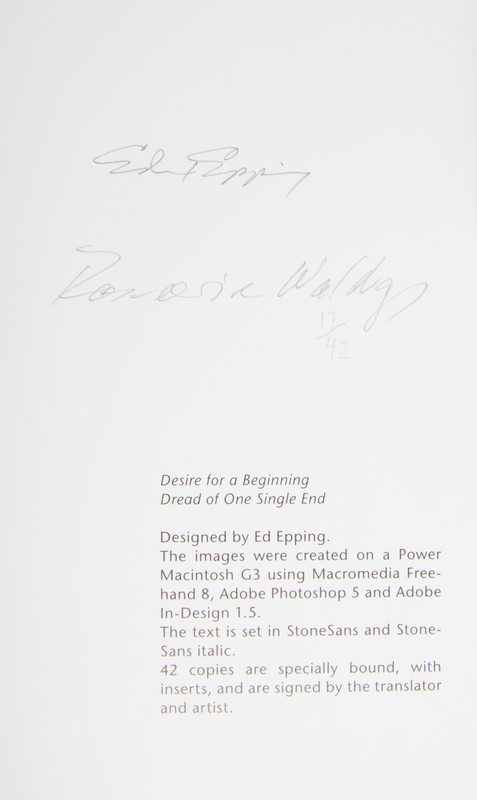 Ed Epping
Rosmarie Waldrop
17/42
Desire for a Beginning
Dread of One Single End
Designed by Ed Epping.
The images were created on a Power
Macintosh G3 using Macromedia Free-
hand 8, Adobe Photoshop 5 and Adobe
In-Design 1.5.
The text is set in StoneSans and Stone-
Sans italic.
42 copies are specially bound, with
inserts, and are signed by the translator
and artist.